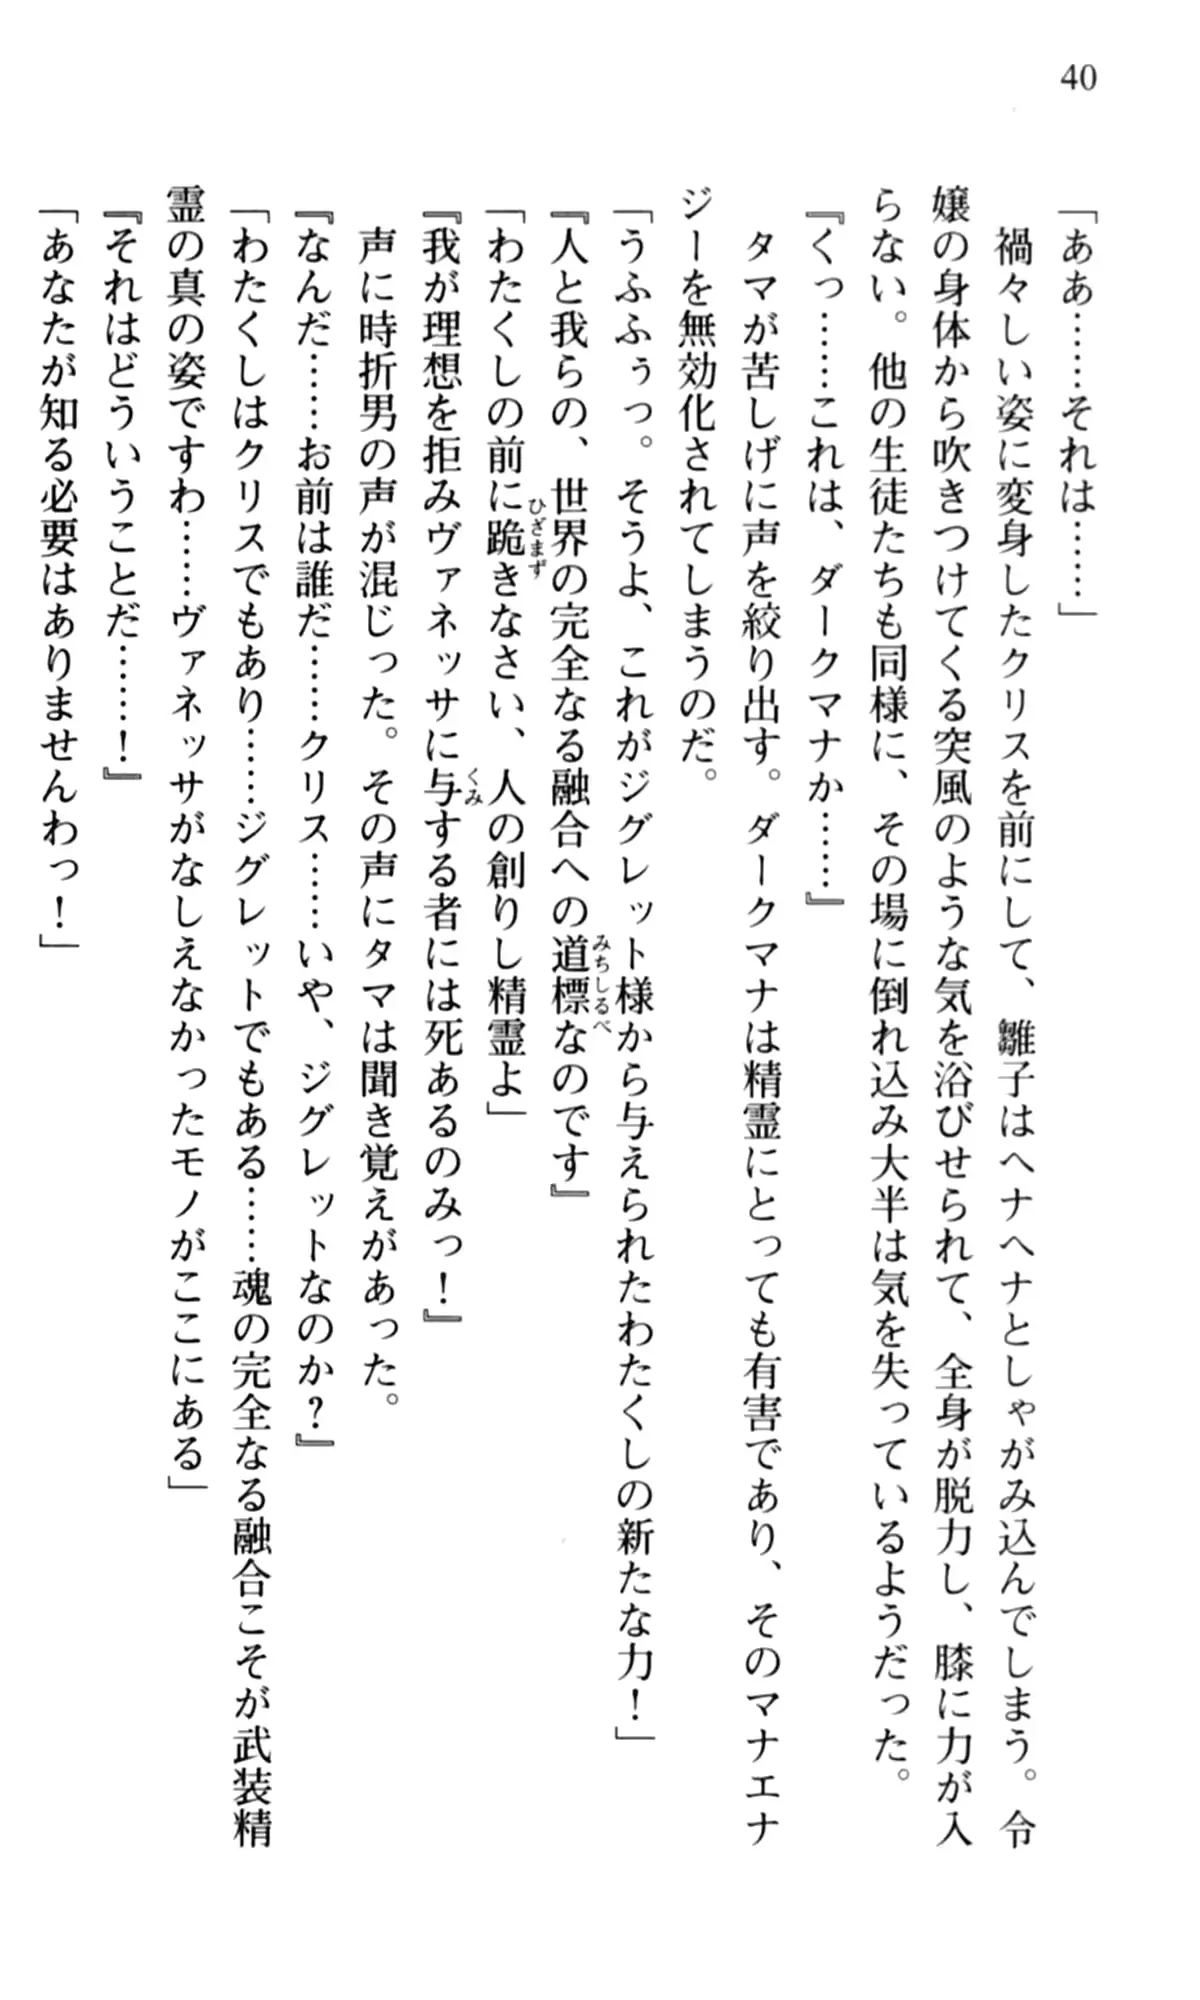 40
「ああ……それは……」
禍々しい姿に変身したクリスを前にして、雛子はヘナヘナとしゃがみ込んでしまう。令
嬢の身体から吹きつけてくる突風のような気を浴びせられて、全身が脱力し、膝に力が入
らない。他の生徒たちも同様に、その場に倒れ込み大半は気を失っているようだった。
『くっ……これは、ダークマナか……』
タマが苦しげに声を絞り出す。ダークマナは精霊にとっても有害であり、そのマナエナ
ジーを無効化されてしまうのだ。
「うふふぅっ。そうよ、これがジグレット様から与えられたわたくしの新たな力！」
『人と我らの、世界の完全なる融合への道標なのです』
「わたくしの前に跪きなさい、人の創りし精霊よ」
『我が理想を拒みヴァネッサに与する者には死あるのみっ！』
声に時折男の声が混じった。その声にタマは聞き覚えがあった。
『なんだ……お前は誰だ……クリス……いや、ジグレットなのか？』
「わたくしはクリスでもあり……ジグレットでもある……魂の完全なる融合こそが武装精
霊の真の姿ですわ……ヴァネッサがなしえなかったモノがここにある」
『それはどういうことだ……！』
「あなたが知る必要はありませんわっ！」